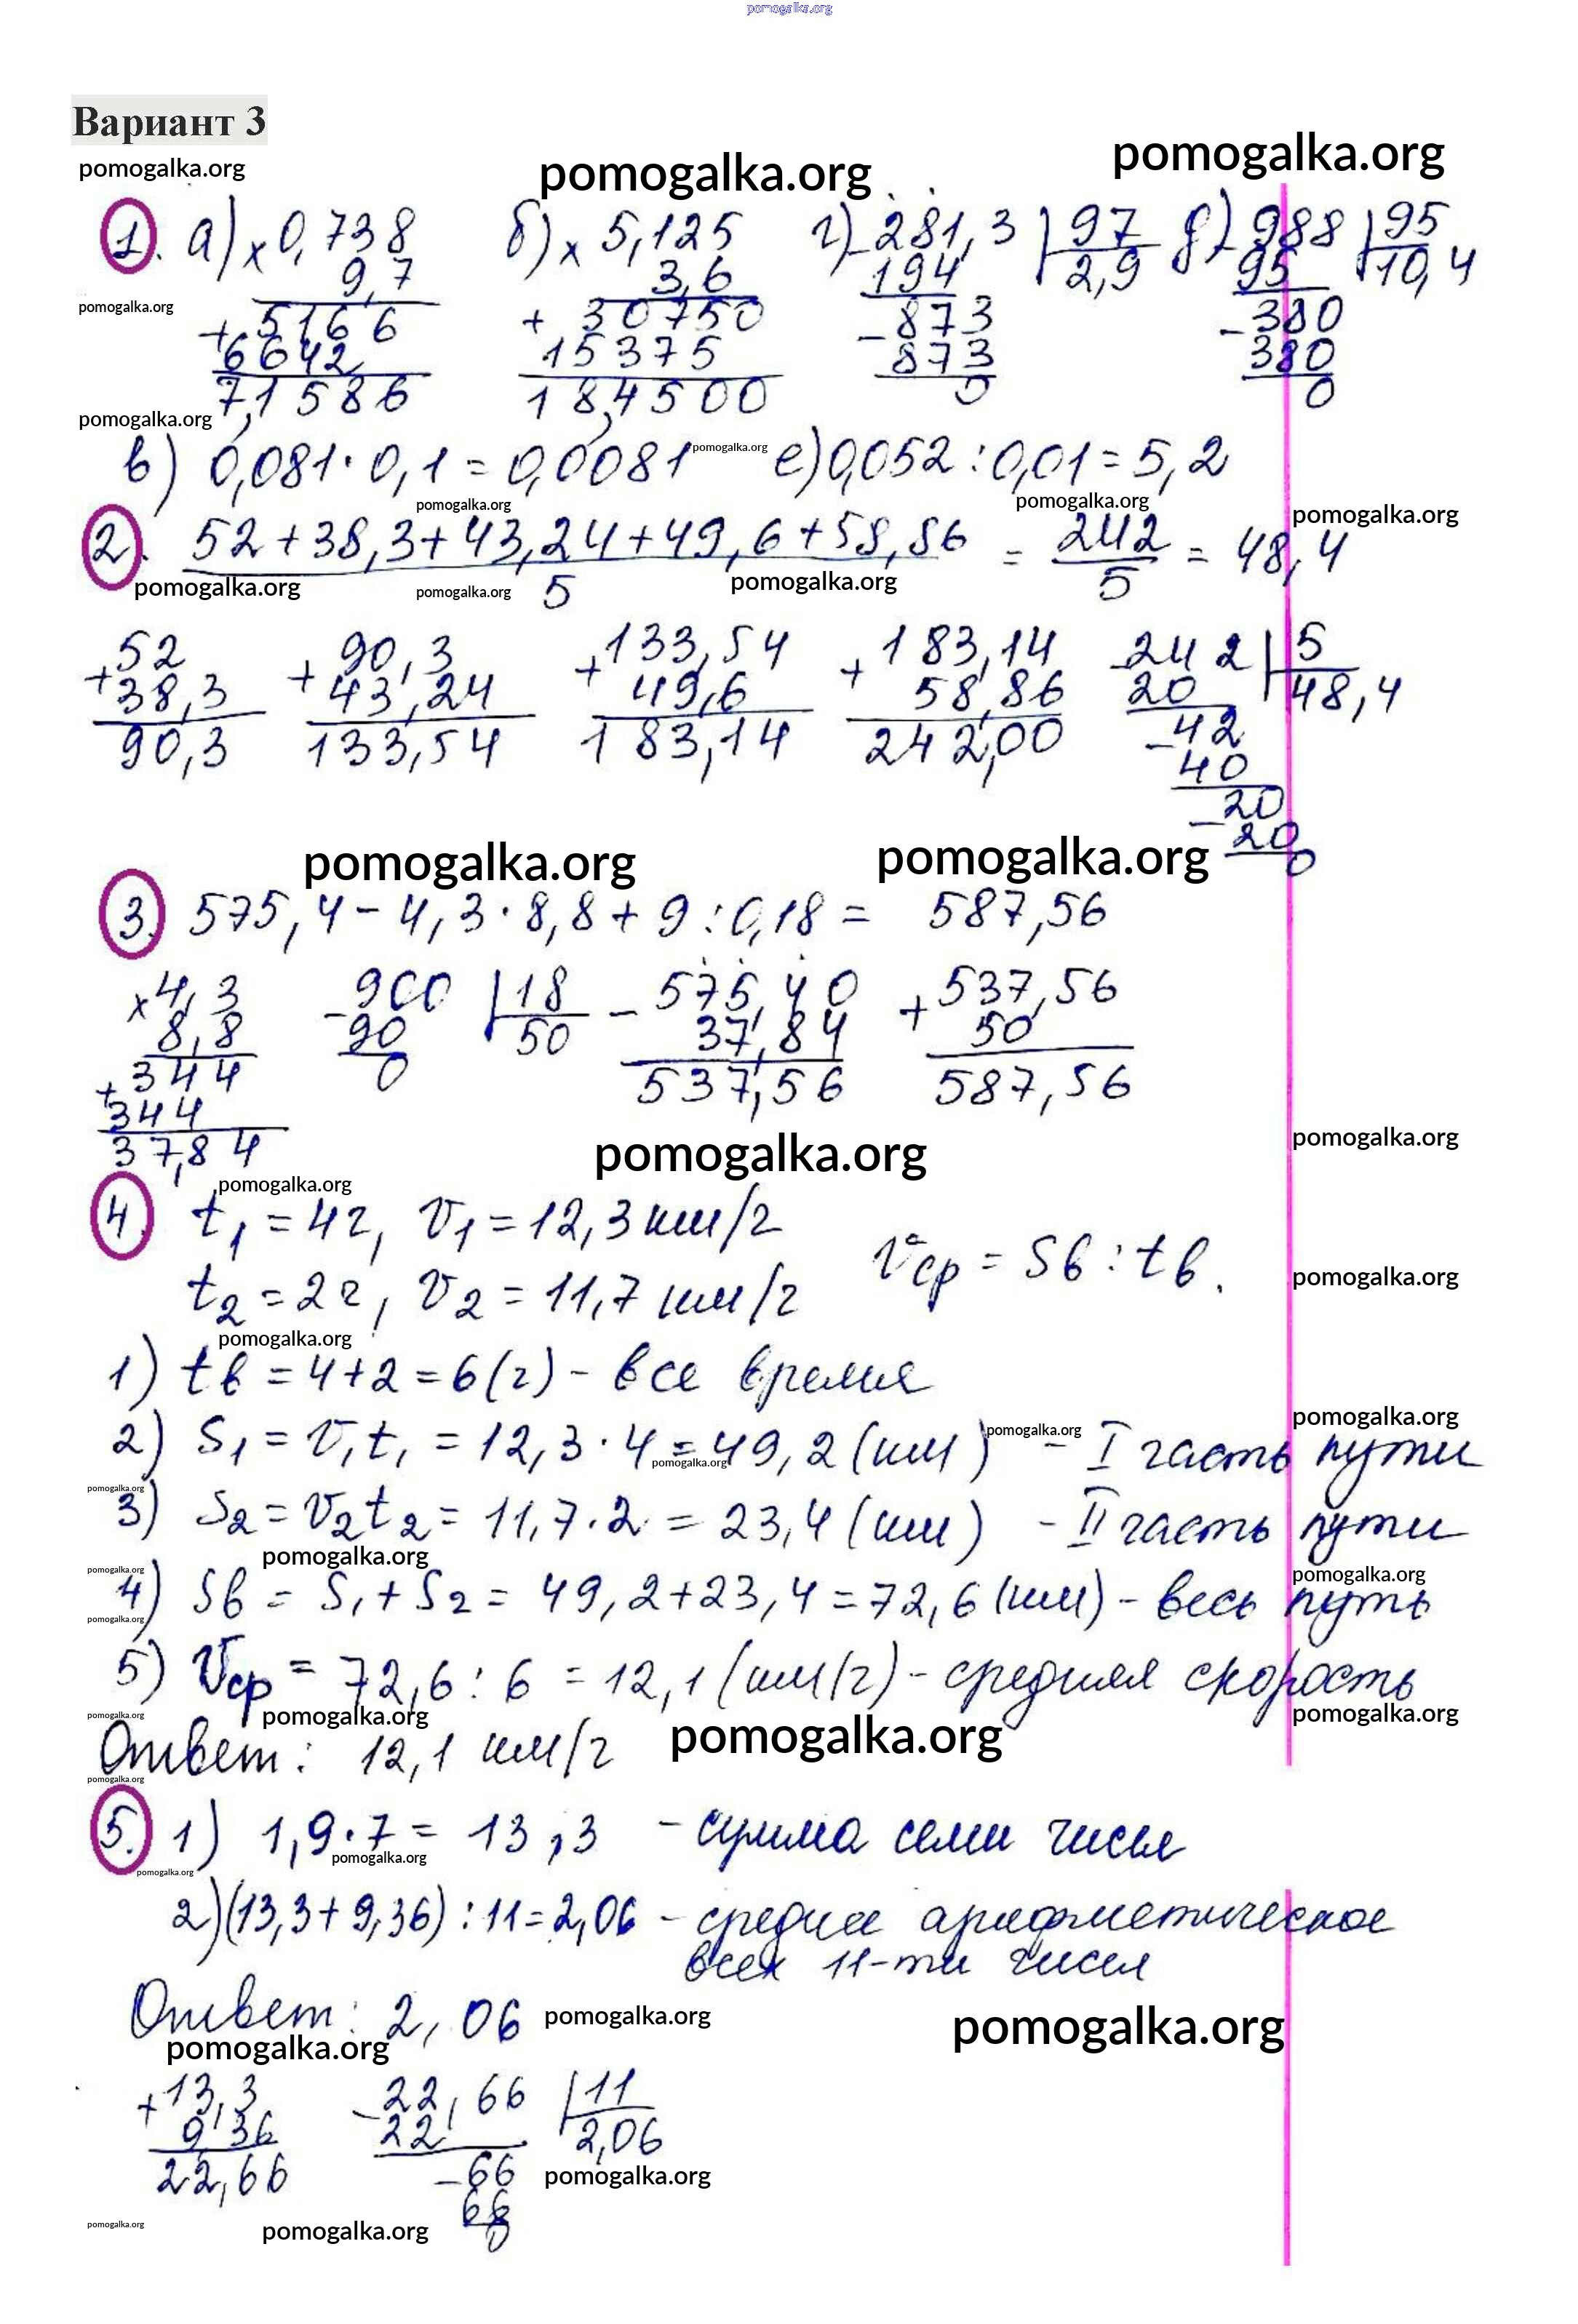 pomogalka.org
Вариант 3
pomogalka.org pomogalka.org pomogalka.org
1. а) × 0,738 б) × 5,125 г) 281,3 | 97 д) 988 | 95
9,7 3,6 194 2,9 95 10,4
pomogalka.org
+ 5166 + 30750 - 873 - 380
6642 15375 873 380
7,1586 18,4500 0 0
pomogalka.org
в) 0,081 · 0,1 = 0,0081 pomogalka.org е) 0,052 : 0,01 = 5,2
pomogalka.org pomogalka.org pomogalka.org
2. 52 + 38,3 + 43,24 + 49,6 + 58,86 = 242 = 48,4
pomogalka.org pomogalka.org 5 pomogalka.org 5
+ 52 + 90,3 + 133,54 + 183,14 - 242 | 5
38,3 43,24 49,6 58,86 20 48,4
90,3 133,54 183,14 242,00 - 42
40
- 20
20
0
pomogalka.org pomogalka.org
3. 575,4 - 4,3 · 8,8 + 9 : 0,18 = 587,56
× 4,3 - 900 | 18 - 575,40 + 537,56
8,8 90 50 37,84 50
+ 344 0 537,56 587,56
344
37,84
pomogalka.org pomogalka.org
pomogalka.org
4. t1 = 4 ч, v1 = 12,3 км/ч
vср = Sв : tв.
t2 = 2 ч, v2 = 11,7 км/ч pomogalka.org
pomogalka.org
1) tв = 4 + 2 = 6 (ч) - все время
pomogalka.org
2) S1 = v1t1 = 12,3 · 4 = 49,2 (км) pomogalka.org - I часть пути
pomogalka.org
pomogalka.org
3) S2 = v2t2 = 11,7 · 2 = 23,4 (км) - II часть пути
pomogalka.org
pomogalka.org pomogalka.org
4) Sв = S1 + S2 = 49,2 + 23,4 = 72,6 (км) - весь путь
pomogalka.org
5) vср = 72,6 : 6 = 12,1 (км/ч) - средняя скорость
pomogalka.org pomogalka.org pomogalka.org pomogalka.org
Ответ: 12,1 км/ч
pomogalka.org
5. 1) 1,9 · 7 = 13,3 - сумма семи чисел
pomogalka.org
pomogalka.org
2) (13,3 + 9,36) : 11 = 2,06 - среднее арифметическое
всех 11-ти чисел
Ответ: 2,06 pomogalka.org pomogalka.org
pomogalka.org
+ 13,3 - 22,66 | 11
9,36 22 2,06
22,66 - 66 pomogalka.org
66
0
pomogalka.org pomogalka.org